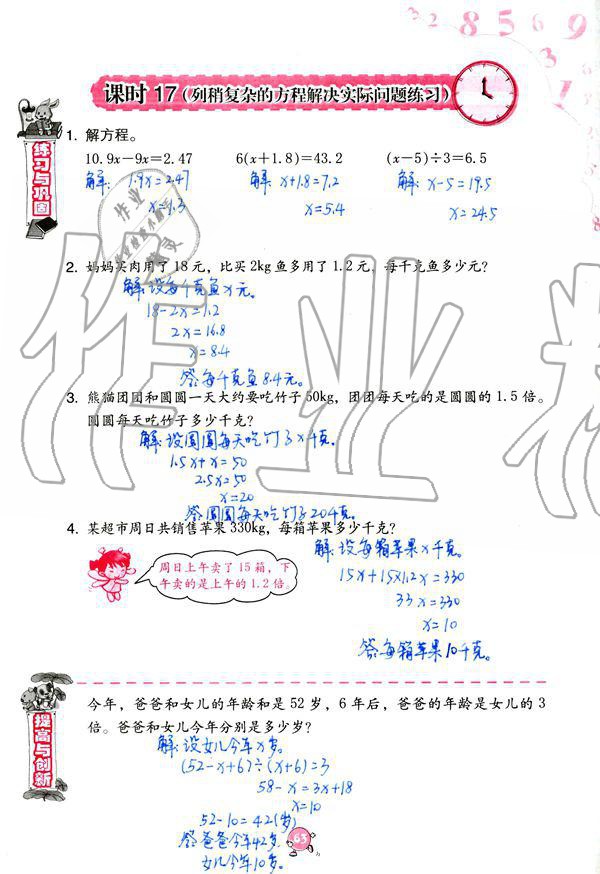 3 2 8 5 6 9
3
1
课时 17（列稍复杂的方程解决实际问题练习）
练习与巩固
1. 解方程。
10.9x－9x＝2.47 6(x＋1.8)＝43.2 (x－5)÷3＝6.5
解: 1.9x=2.47 解: x+1.8=7.2 解: x-5=19.5
x=1.3 x=5.4 x=24.5
2. 妈妈买肉用了 18 元，比买 2kg 鱼多用了 1.2 元，每千克鱼多少元？
解:设每千克鱼x元。
18-2x=1.2
2x=16.8
x=8.4
答:每千克鱼8.4元。
3. 熊猫团团和圆圆一天大约要吃竹子 50kg，团团每天吃的是圆圆的 1.5 倍。
圆圆每天吃竹子多少千克？
解:设圆圆每天吃竹子x千克。
1.5x+x=50
2.5x=50
x=20
答:圆圆每天吃竹子20千克。
4. 某超市周日共销售苹果 330kg，每箱苹果多少千克？
周日上午卖了 15 箱，下
午卖的是上午的 1.2 倍。
解:设每箱苹果x千克。
15x+15x×1.2=330
33x=330
x=10
答:每箱苹果10千克。
提高与创新
今年，爸爸和女儿的年龄和是 52 岁，6 年后，爸爸的年龄是女儿的 3
倍。爸爸和女儿今年分别是多少岁？
解:设女儿今年x岁。
(52-x+6)÷(x+6)=3
58-x=3x+18
x=10
52-10=42(岁)
答:爸爸今年42岁,
女儿今年10岁。
63
作业精